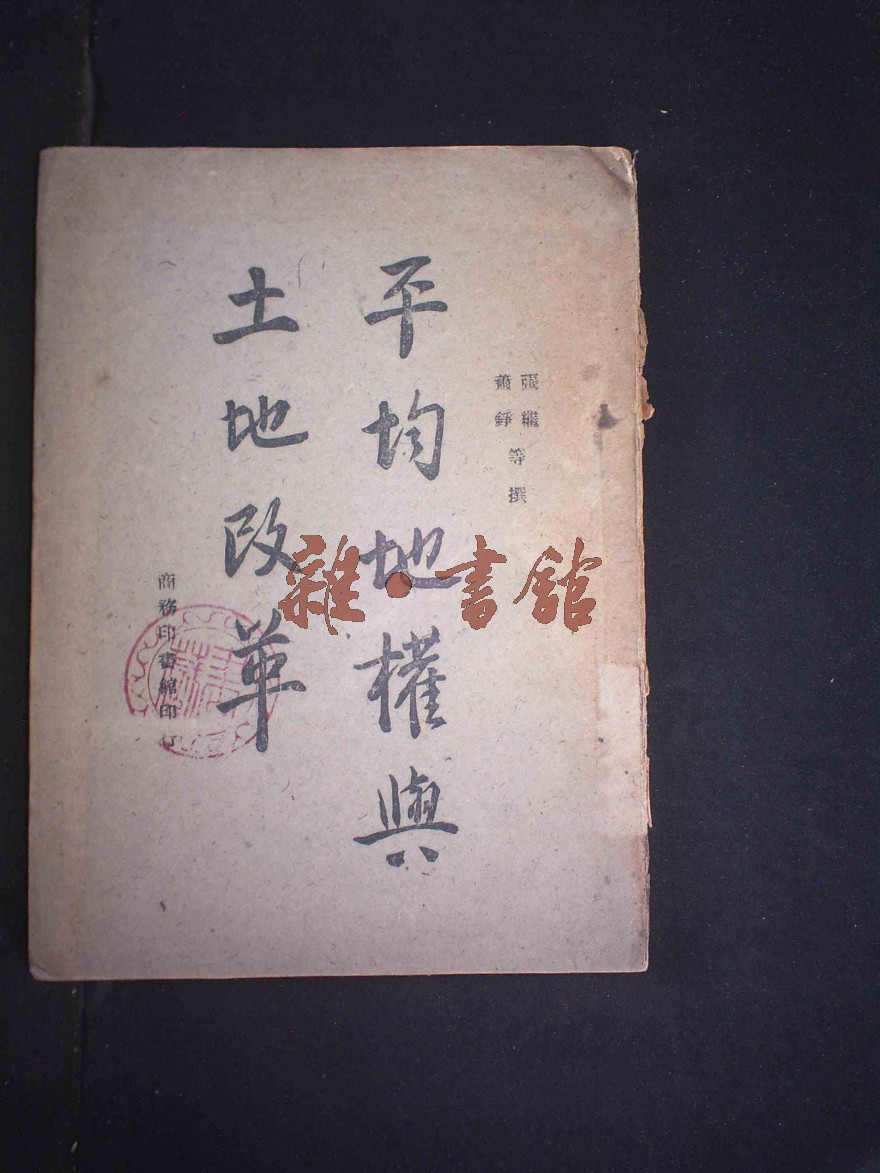 張繼
蕭錚
等撰
平均地權與
土地改革
商務印書館印行
雜·書館